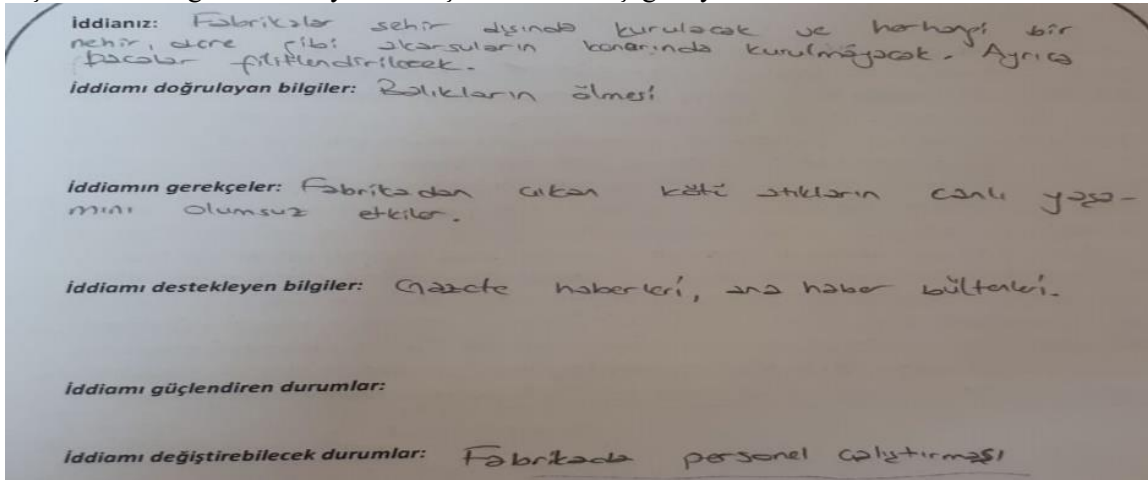 İddianız: Fabrikalar şehir dışında kurulacak ve herhangi bir
nehir, dere gibi akarsuların kenarında kurulmayacak. Ayrıca
bacalar filitlendirilecek.
İddiamı doğrulayan bilgiler: Balıkların ölmesi
İddiamın gerekçeler: Fabrikadan çıkan kötü atıkların canlı yaşa-
mını olumsuz etkiler.
İddiamı destekleyen bilgiler: Gazete haberleri, ana haber bültenleri.
İddiamı güçlendiren durumlar:
İddiamı değiştirebilecek durumlar: Fabrikada personel çalıştırması